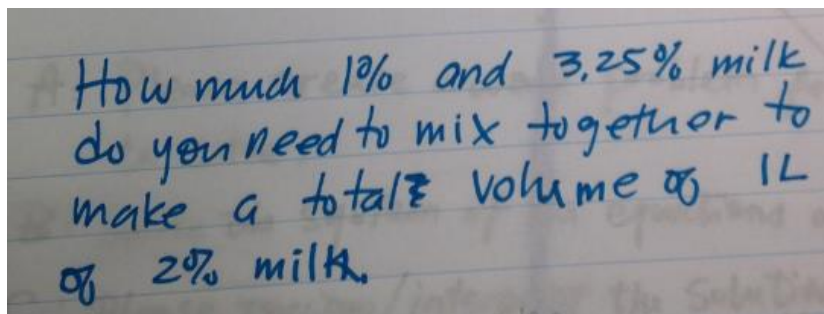 How much 1% and 3.25% milk
do you need to mix together to
make a total volume of 1L
of 2% milk.